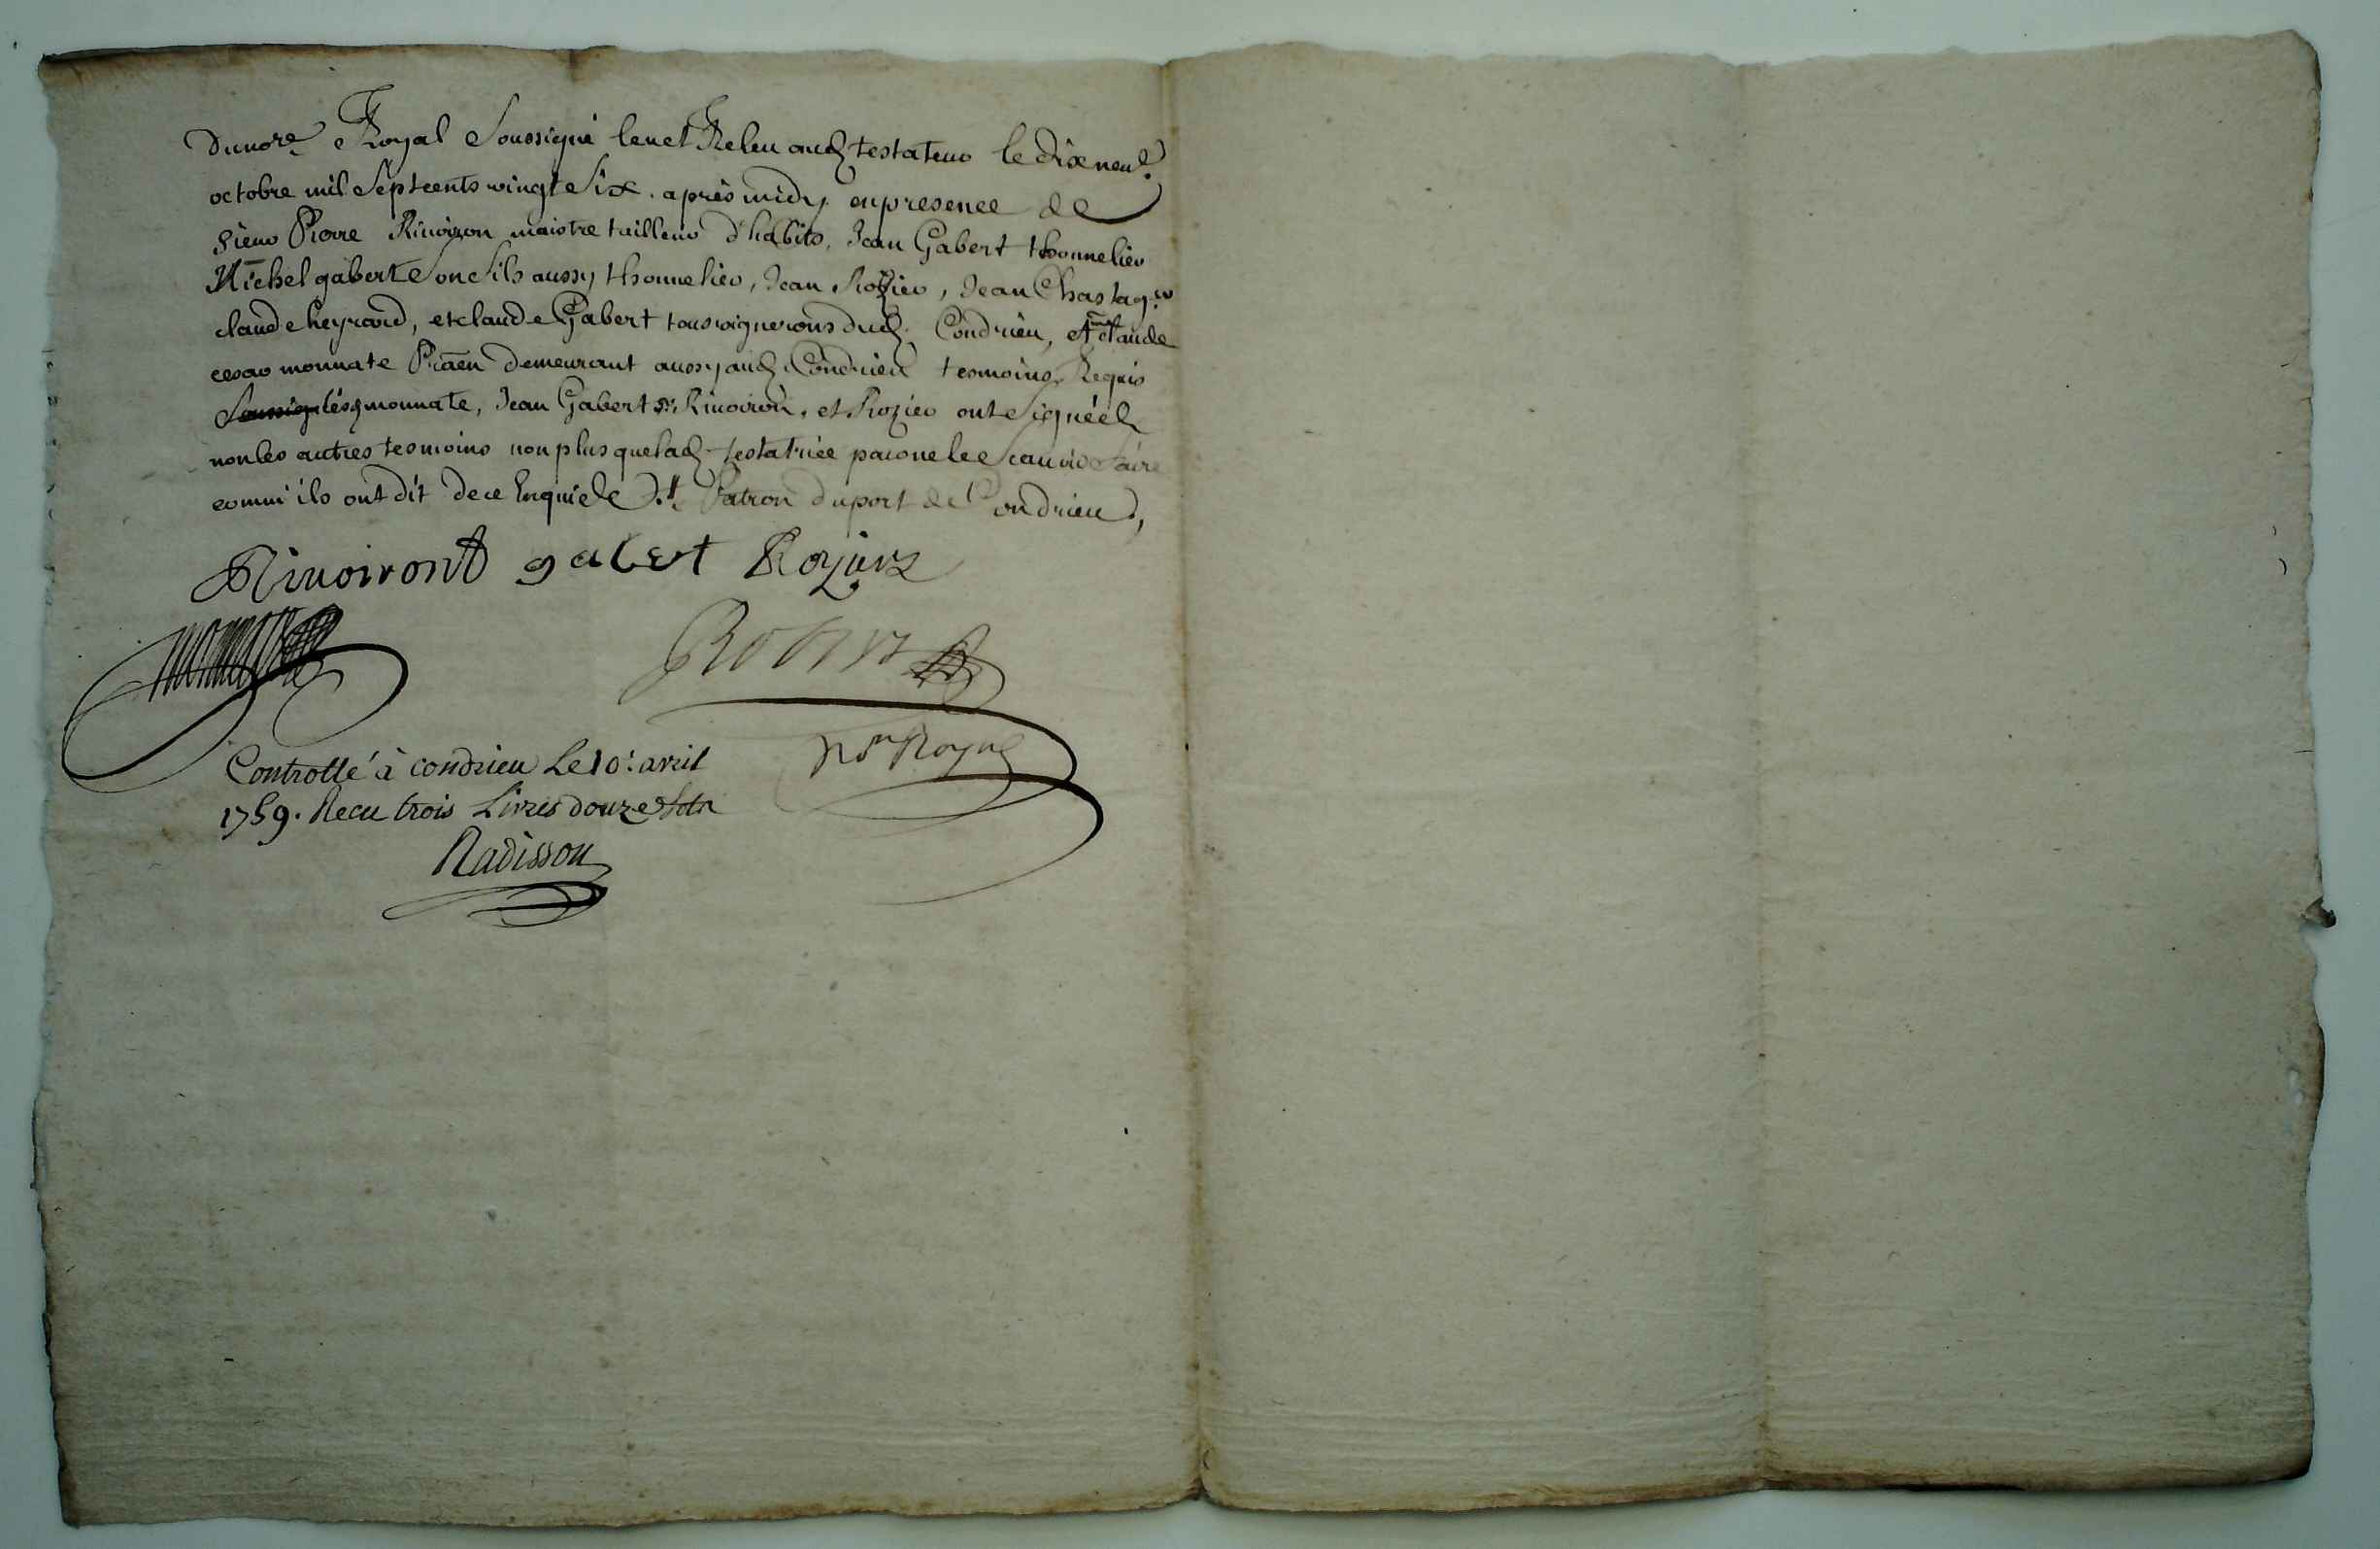 du no.re Royal soussigné leu et Releu aud testateur le dix neuf.
octobre mil septcents vingt six . apres midy en presence de
sieur Pierre Rivoiron maistre tailleur d'habits, Jean Gabert thonnelier
Michel gabert son fils aussy thonnelier, Jean Rozier, Jean Chastag.er
claude heyraud, et claude Gabert tous vignerons dud. Condrieu, et me claude
cesar monnate demeurant aussy aud Condrieu tesmoins Requis
soussig lesq monnate, Jean Gabert sr. Rivoiron, et Rozier ont signé et
non les autres tesmoins non plus que lad testatrice pour ne le scavoir faire
comm'ils ont dit de ce Enquis le d.t Patron du port de Condrieu,
Rivoiront gabert Rozier
monnate
Controllé à condrieu Le 10.e avril n.re Royal
1759. Recu trois Livres douze sols
Radisson